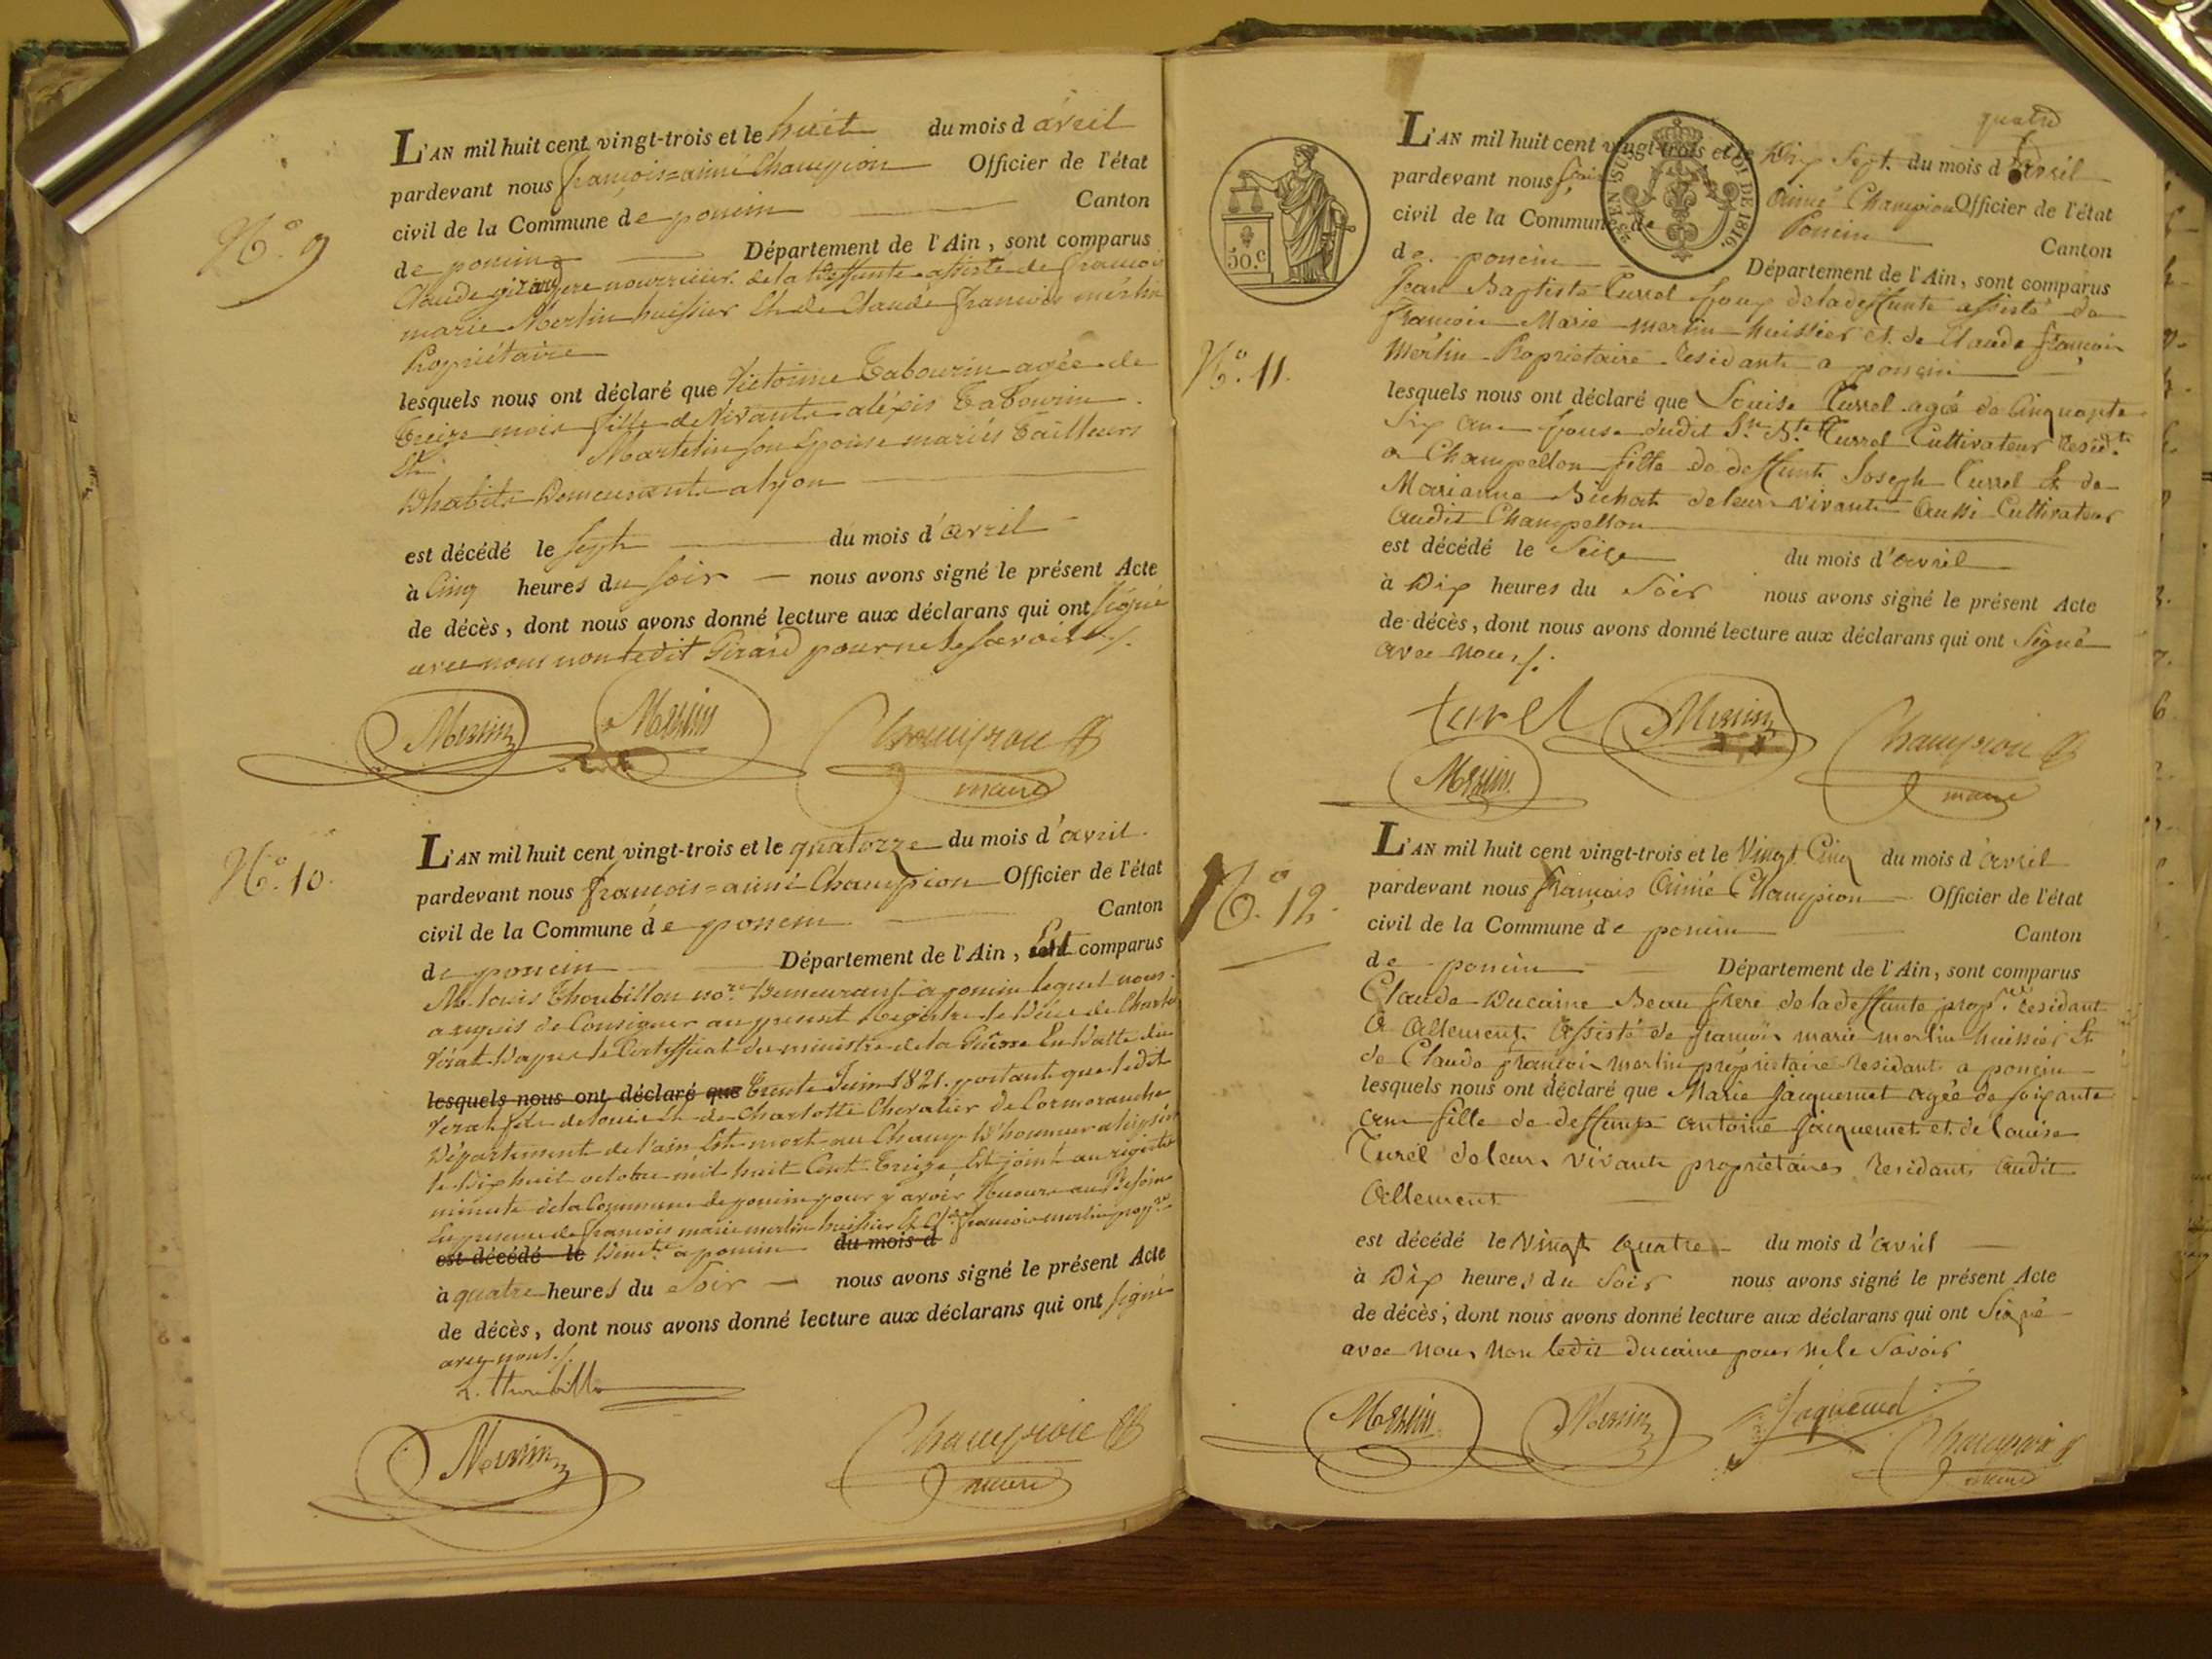 N.o 9
L'AN mil huit cent vingt-trois et le huit du mois d avril
pardevant nous françois=aimé Champion Officier de l'état
civil de la Commune de poncin Canton
de poncin Département de l'Ain, sont comparus
Claude girard pere nourricier de la deffunte assisté de françois
marie Merlin huissier Et de Claude françois merlin
Propriétaire
lesquels nous ont déclaré que Victorine Tabourin agée de
treize mois fille de vivants aléxis Tabourin
Et Martelin son Epouse mariés tailleurs
D'habits Demeurants a lyon
est décédé le sept du mois d'avril
à Cinq heures du soir nous avons signé le présent Acte
de décès, dont nous avons donné lecture aux déclarans qui ont signé
avec nous non ledit Girard pour ne le savoir ./.
Merlin Merlin Champion
maire
N.o 10.
L'AN mil huit cent vingt-trois et le quatorze du mois d'avril
pardevant nous françois=aimé Champion Officier de l'état
civil de la Commune de poncin Canton
de poncin Département de l'Ain, Est comparus
Me. louis Thoubillon nore. Demeurant à poncin lequel nous
a requis de Consigner au present Registre le Décès de Charle
Vérat D'apres le Certifficat du ministre de la Guerre En Datte du
lesquels nous ont déclaré que trente Juin 1821. portant que ledit
Verat fils de louis Et de Charlotte Chevalier de Cormoranche
Département de l'ain Est mort au Champ D'honneur a leipsick
le Dix huit octobre mil huit Cent treize Est joint au registre
minute de la Commune de poncin pour y avoir Recours au Besoin
En presence de françois marie merlin huissier Et Cde. françois merlin propre.
est décédé le Demts. a poncin du mois d
à quatre heures du soir nous avons signé le présent Acte
de décès, dont nous avons donné lecture aux déclarans qui ont signé
avec nous ./.
L. Thoubillon
Merlin Champion
maire
50.c
EN SUS LOI DE 1816.
quatre
L'AN mil huit cent vingt-trois et le Dix Sept. du mois d avril
pardevant nous Aimé Champion Officier de l'état
civil de la Commune de Poncin Canton
de poncin Département de l'Ain, sont comparus
Jean Baptiste Turrel Epoux de la deffunte assisté de
François Marie merlin huissier et de Claude françois
Merlin Propriétaire residants a poncin
N.o 11.
lesquels nous ont déclaré que Louise Turrel agée de Cinquante
Six ans Epouse dudit Jn. Bte. Turrel Cultivateur residt.
a Champellon fille de deffunts Joseph Turrel Et de
Marianne Bichat de leurs vivants aussi Cultivateur
audit Champellon
est décédé le Seize du mois d'avril
à Dix heures du Soir nous avons signé le présent Acte
de décès, dont nous avons donné lecture aux déclarans qui ont Signé
avec nous ./.
turel Merlin Champion
Merlin maire
N.o 12.
L'AN mil huit cent vingt-trois et le Vingt Cinq du mois d avril
pardevant nous français Aimé Champion Officier de l'état
civil de la Commune de poncin Canton
de poncin Département de l'Ain, sont comparus
Claude Ducaine Beau frere de la deffunte propre. residant
à Allement assisté de françois marie merlin huissier Et
de Claude françois merlin propriétaire residants a poncin
lesquels nous ont déclaré que Marie Jacquemet agée de soixante
ans fille de deffunts antoine Jacquemet et de Louise
Turel de leurs vivants propriétaires residants audit
Allement
est décédé le vingt quatre du mois d'avril
à Dix heures du Soir nous avons signé le présent Acte
de décès, dont nous avons donné lecture aux déclarans qui ont Signé
avec nous non ledit Ducaine pour ne le Savoir
Merlin Merlin Champion
maire